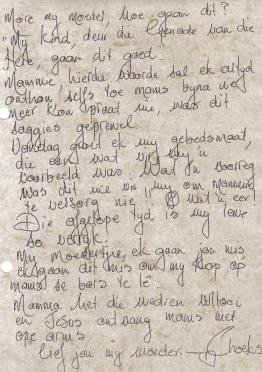 More my moeder, hoe gaan dit?
"My kind deur die Genade van die
Here, gaan dit goed.
Mammie, hierdie woorde sal ek altyd
onthou, selfs toe mams byna nie
meer kon praat nie, was dit
saggies geprewel.
Vandag groet ek my gebedsmaat,
die een wat vir my 'n
voorbeeld was. Wat 'n voorreg
was dit nie vir my om Mammie
te versorg nie. Wat 'n eer!
Die afgelope tyd is my lewe
so
My Moedertjie, ek gaan jou mis
ek gaan dit mis om my kop op
mams se bors te lê.
Mamma het die wedren voltooi
en Jesus ontvang mams met
ope arms.
Lief jou my moeder.